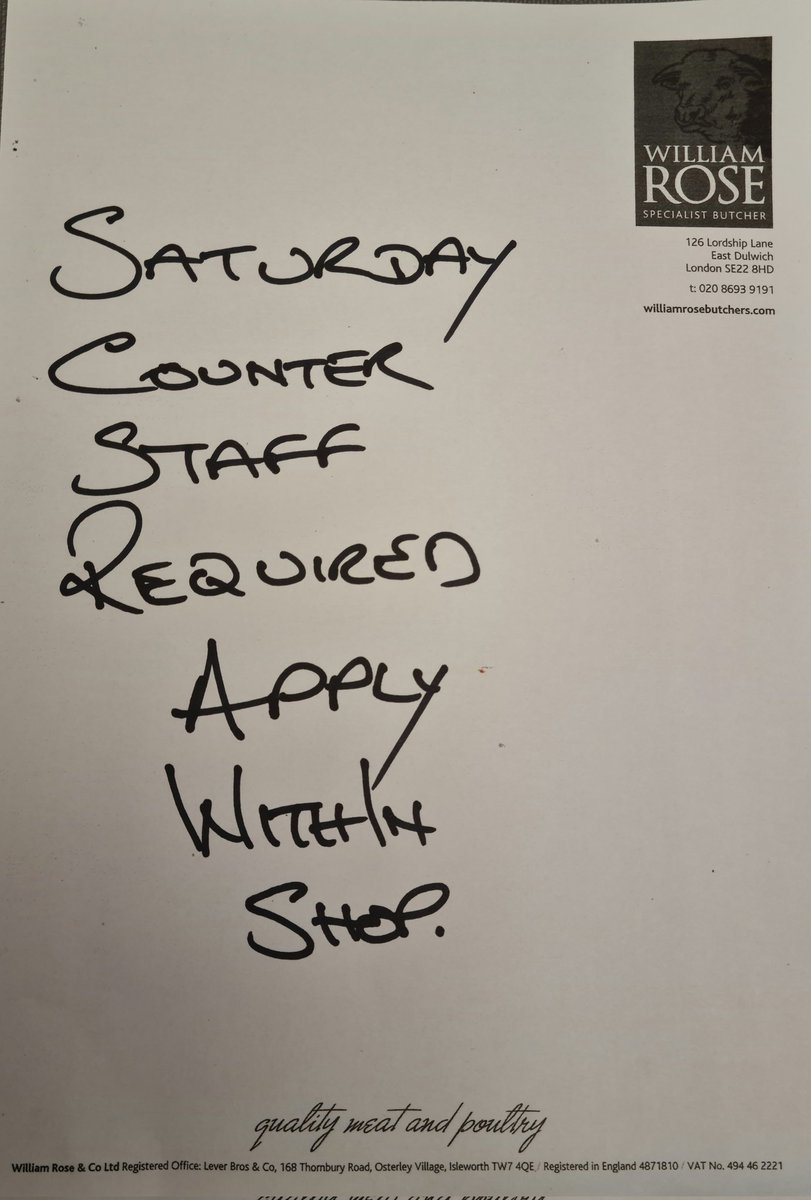 WILLIAM
ROSE
SPECIALIST BUTCHER
126 Lordship Lane
East Dulwich
London SE22 8HD
t: 020 8693 9191
williamrosebutchers.com
SATURDAY
COUNTER
STAFF
REQUIRED
APPLY
WITHIN
SHOP.
quality meat and poultry
William Rose & Co Ltd Registered Office: Lever Bros & Co, 168 Thornbury Road, Osterley Village, Isleworth TW7 4QE / Registered in England 4871810 / VAT No. 494 46 2221